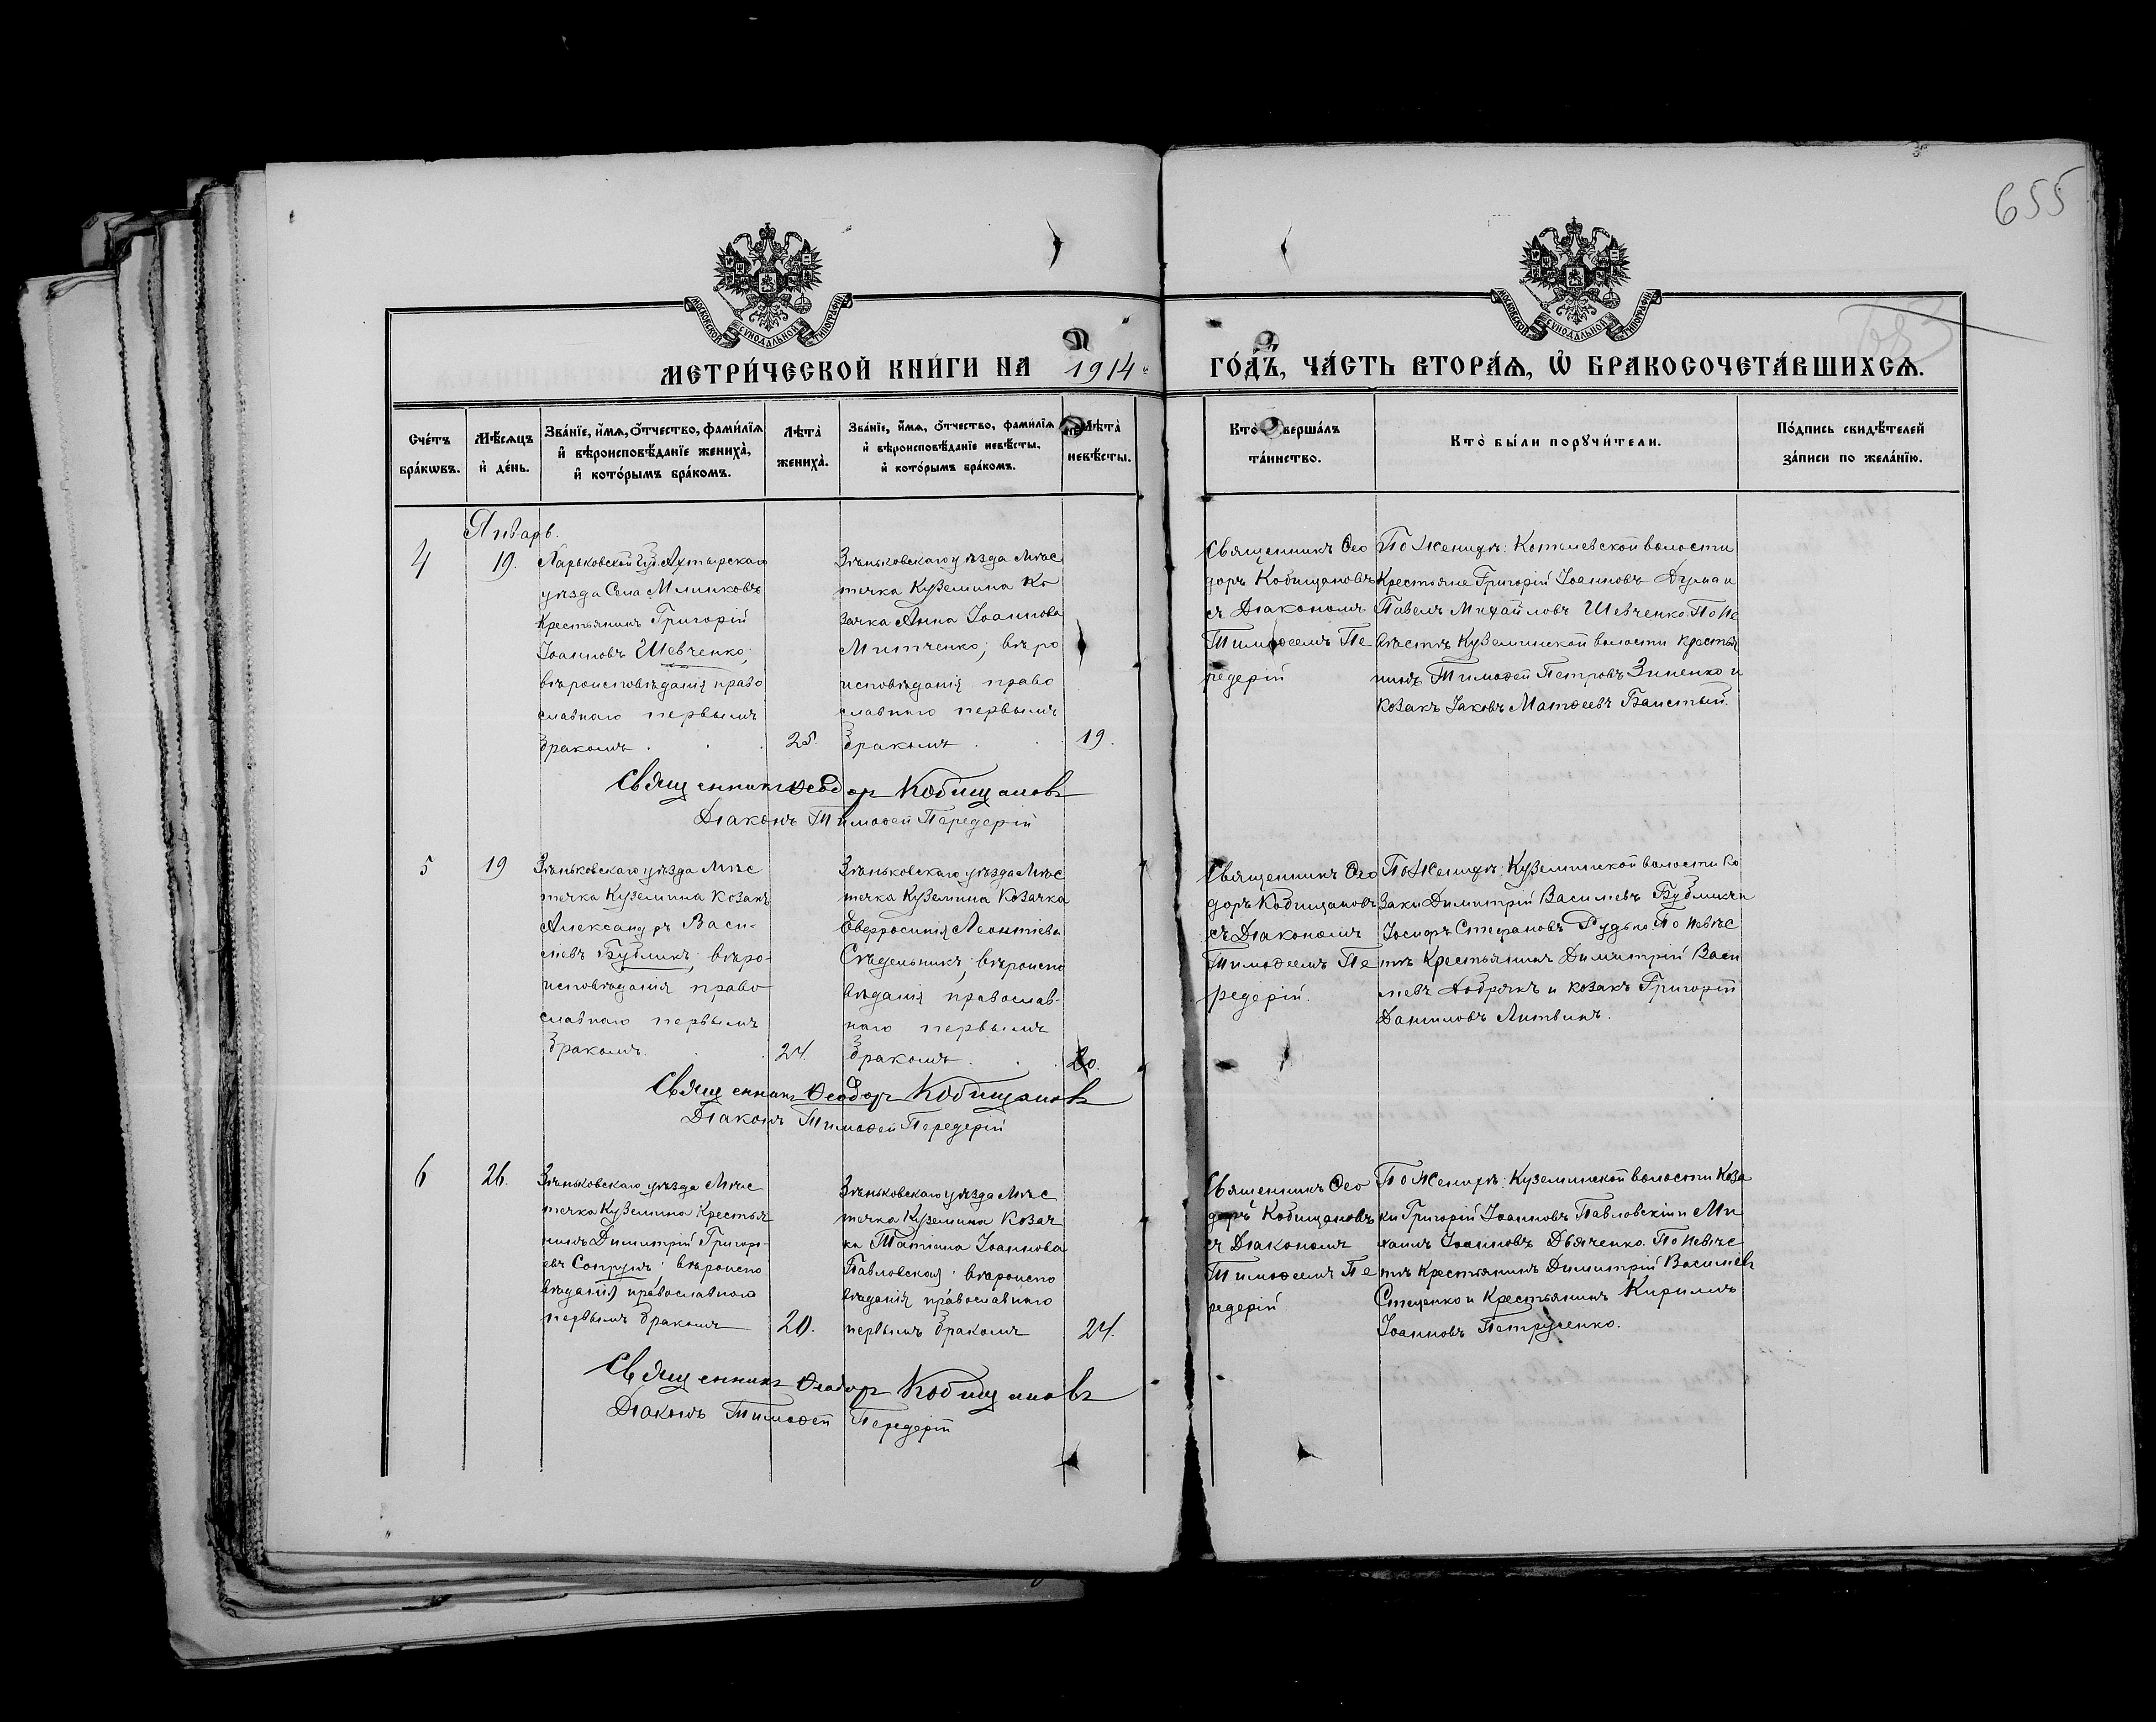 655
МОСКОВСКОЙ СУНОДАЛЬНОЙ ТИПОГРАФІИ
МОСКОВСКОЙ СУНОДАЛЬНОЙ ТИПОГРАФІИ
МЕТРИ́ЧЕСКОЙ КНИ́ГИ НА 1914 ГО́ДЪ, ЧА́СТЬ ВТОРА́Я, Ѡ҆ БРАКОСОЧЕТА́ВШИХСЯ.
Сче́тъ бра́кѡвъ.
Мѣ́сяцъ и҆ де́нь.
Зва́нїе, и҆́мя, ѻ҆́тчество, фами́лїя
и҆ вѣроисповѣ́данїе жениха̀,
и҆ кото́рымъ бра́комъ.
Лѣта̀ жениха̀.
Зва́нїе, и҆́мя, ѻ҆́тчество, фами́лїя
и҆ вѣроисповѣ́данїе невѣ́сты,
и҆ кото́рымъ бра́комъ.
Лѣта̀ невѣ́сты.
Кто̀ соверша́лъ
та́инство.
Кто̀ бы́ли порꙋчи́тели.
По́дпись свидѣ́телей
за́писи по жела́нїю.
Январь.
4
19.
Харьковской губ. Ахтырскаго
уѣзда Села Млинковъ
Крестьянинъ Григорій
Іоанновъ Шевченко;
вѣроисповѣданія право
славнаго первымъ
бракомъ.
25.
Зѣньковскаго уѣзда Мѣс
течка Куземина Ко
зачка Анна Іоаннова
Митченко; вѣро
исповѣданія право
славнаго первымъ
бракомъ.
19.
Священникъ Ѳео
доръ Кобищановъ
съ Діакономъ
Тимоѳеемъ Пе
редерій
По Женихѣ: Котелевской волости
Крестьяне Григорій Іоанновъ Думан
Павелъ Михайловъ Шевченко. По Не
вѣстѣ Куземинской волости Крестья
нинъ Тимоѳей Петровъ Зиненко и
козакъ Іаковъ Матѳеевъ
Священникъ Ѳеодоръ Кобищановъ
Діаконъ Тимоѳей Передерій
5
19
Зѣньковскаго уѣзда Мѣс
течка Куземина Козакъ
Александръ Васи-
левъ Бубликъ; вѣро-
исповѣданія право
славнаго первымъ
бракомъ.
24.
Зѣньковскаго уѣзда Мѣс
течка Куземина Козачка
Евфросинія Леонтіева
Сѣдельникъ; вѣроиспо
вѣданія православ-
наго первымъ
бракомъ.
20.
Священникъ Ѳео
доръ Кобищановъ
съ Діакономъ
Тимоѳеемъ Пе
редерій.
По Женихѣ: Куземинской волости Ко
заки Димитрій Василевъ Бубликъ и
Іосифъ Стефановъ Рудько. По Невѣс
тѣ Крестьянинъ Димитрій Васи
левъ Добрякъ и козакъ Григорій
Даниловъ Литвинъ.
Священникъ Ѳеодоръ Кобищановъ
Діаконъ Тимоѳей Передерій
6
26.
Зѣньковскаго уѣзда Мѣс
течка Куземина Крестья
нинъ Димитрій Григорі-
евъ Сопрунъ: вѣроиспо
вѣданія православнаго
первымъ бракомъ
20.
Зѣньковскаго уѣзда Мѣс
течка Куземина Козач
ка Татіана Іоаннова
Павловская: вѣроиспо
вѣданія православнаго
первымъ бракомъ
24.
Священникъ Ѳео
доръ Кобищановъ
съ Діакономъ
Тимоѳеемъ Пе
редерій
По Женихѣ: Куземинской волости Коза
ки Григорій Іоанновъ Павловскій и Ми
хаилъ Іоанновъ Дьяченко. По Невѣс
тѣ Крестьянинъ Димитрій Василевъ
Стеценко и Крестьянинъ Кирилъ
Іоанновъ Петрусенко.
Священникъ Ѳеодоръ Кобищановъ
Діаконъ Тимоѳей Передерій